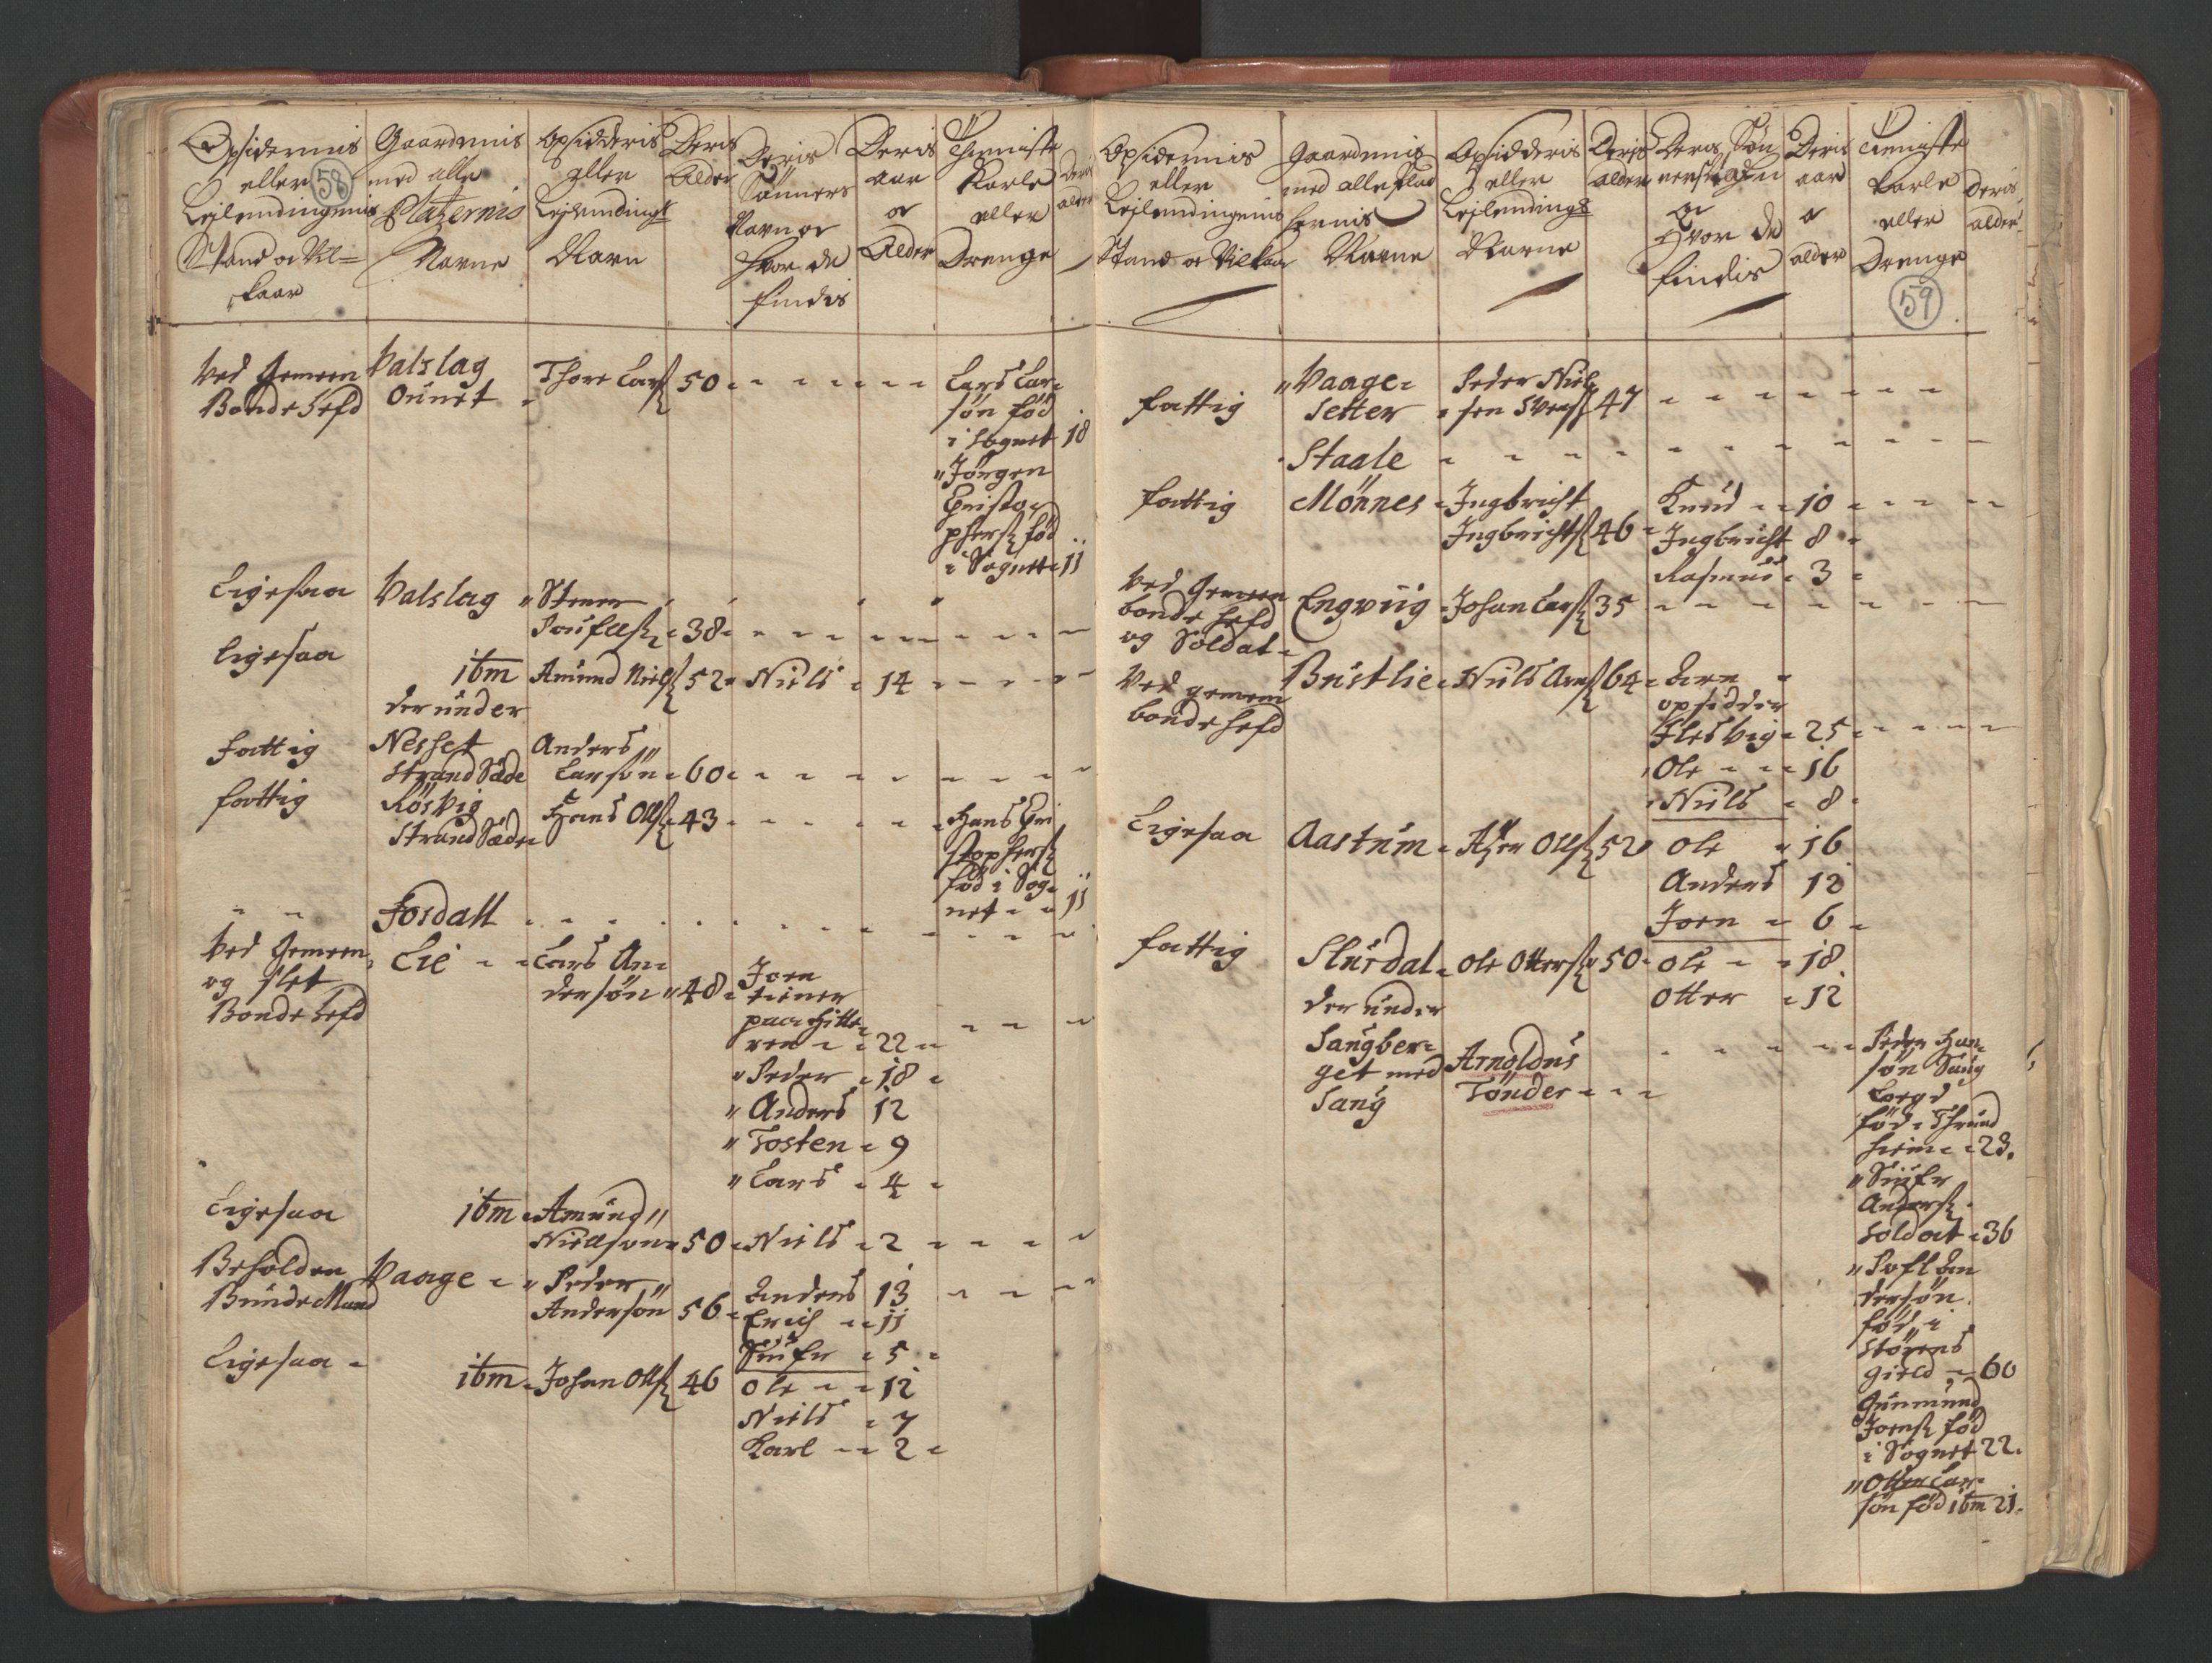 Opsidernis
eller
Lejlendingernis
Stand oc Vil=
kaar
58
Gaardernis
med alle
Platzernis
Navne
Opsidderis
eller
Lejlendings
Navn
Deris
Alder
Deris
Sønners
Navn oc
hvor de
findis
Deris
aar
oc
Alder
Thieniste
Karle
eller
Drenge
Deris
alder
Ved gemeen
Bonde hefd
Valslag
Oünet
Thore Larß 50
Lars Lar-
søn fød
i Sognet 18
"Jörgen
Cristo-
phersß fød
i Sognet 11
Ligesaa
Valslag
"Stener
Poufelß 38
Ligesaa
ibm
Amund Nielß 52
Niels 14
der ünder
fattig
Nesset
Strand Sæde
Anders
Larsøn 60
fattig
Røsvig
Strand Sæde
Hans Olß 43
Hans Cri
stophersß
fød i Sog-
net 11
Fosdall
Ved gemeen
og slet
Bonde hefd
Lie
Lars An-
dersøn 48
Joen
tiener
paa Hitte-
ren 22
"Peder 18
"Anders 12
"Tosten 9
"Lars 4
Ligesaa
ibm
Amünd
Nielsøn 50
Niels 2
Beholden
Bunde Mand
Vaage
"Peder
Andersøn 56
Anders 13
Erich 11
Siufer 5
Ligesaa
ibm
Johan Olß 46
Ole 12
Niels 7
Karl 2
Opsidernis
eller
Lejlendingernis
Stand oc Vilkaar
Gaardernis
med alle Plad
sernis
Navne
Opsidderis
eller
Lejlendings
Navne
Deris
alder
Deris Søn
ners Nafn
oc
hvor de
findis
Deris
aar
oc
alder
Tieniste
karle
eller
Drenge
Deris
alder
59
fattig
"Vaage-
setter
Peder Niel
sen Svensß 47
Staale
fattig
Mönnes
Ingbricht
Ingbrichtß 46
Knud 10
Ingbricht 8
Rasmus 3
Ved gemeen
bonde hefd
og Soldat
Engviig
Johan Larß 35
Ved gemeen
bonde hefd
Büstlie
Niels Arnß 64
Arn
opsidder
Flesvig 25
Ole 16
Niels 8
Ligesaa
Aastrüm
Olß 52
Ole 16
Anders 12
Joen 6
fattig
Slürdal
Ole Ottersß 50
Ole 18
Otter 12
der ünder
Saugber-
get med
Saug
Arnoldus
Tönder
Peder Han-
søn Saug
fød i Thrund
hiem 28.
"Siufer
Andersß
Soldat 36
An
dersøn
fød i
Størens
gield 60
Gunmünd
Joensß fød
i Sognet 22.
"Otter Lar-
søn fød ibm 21.